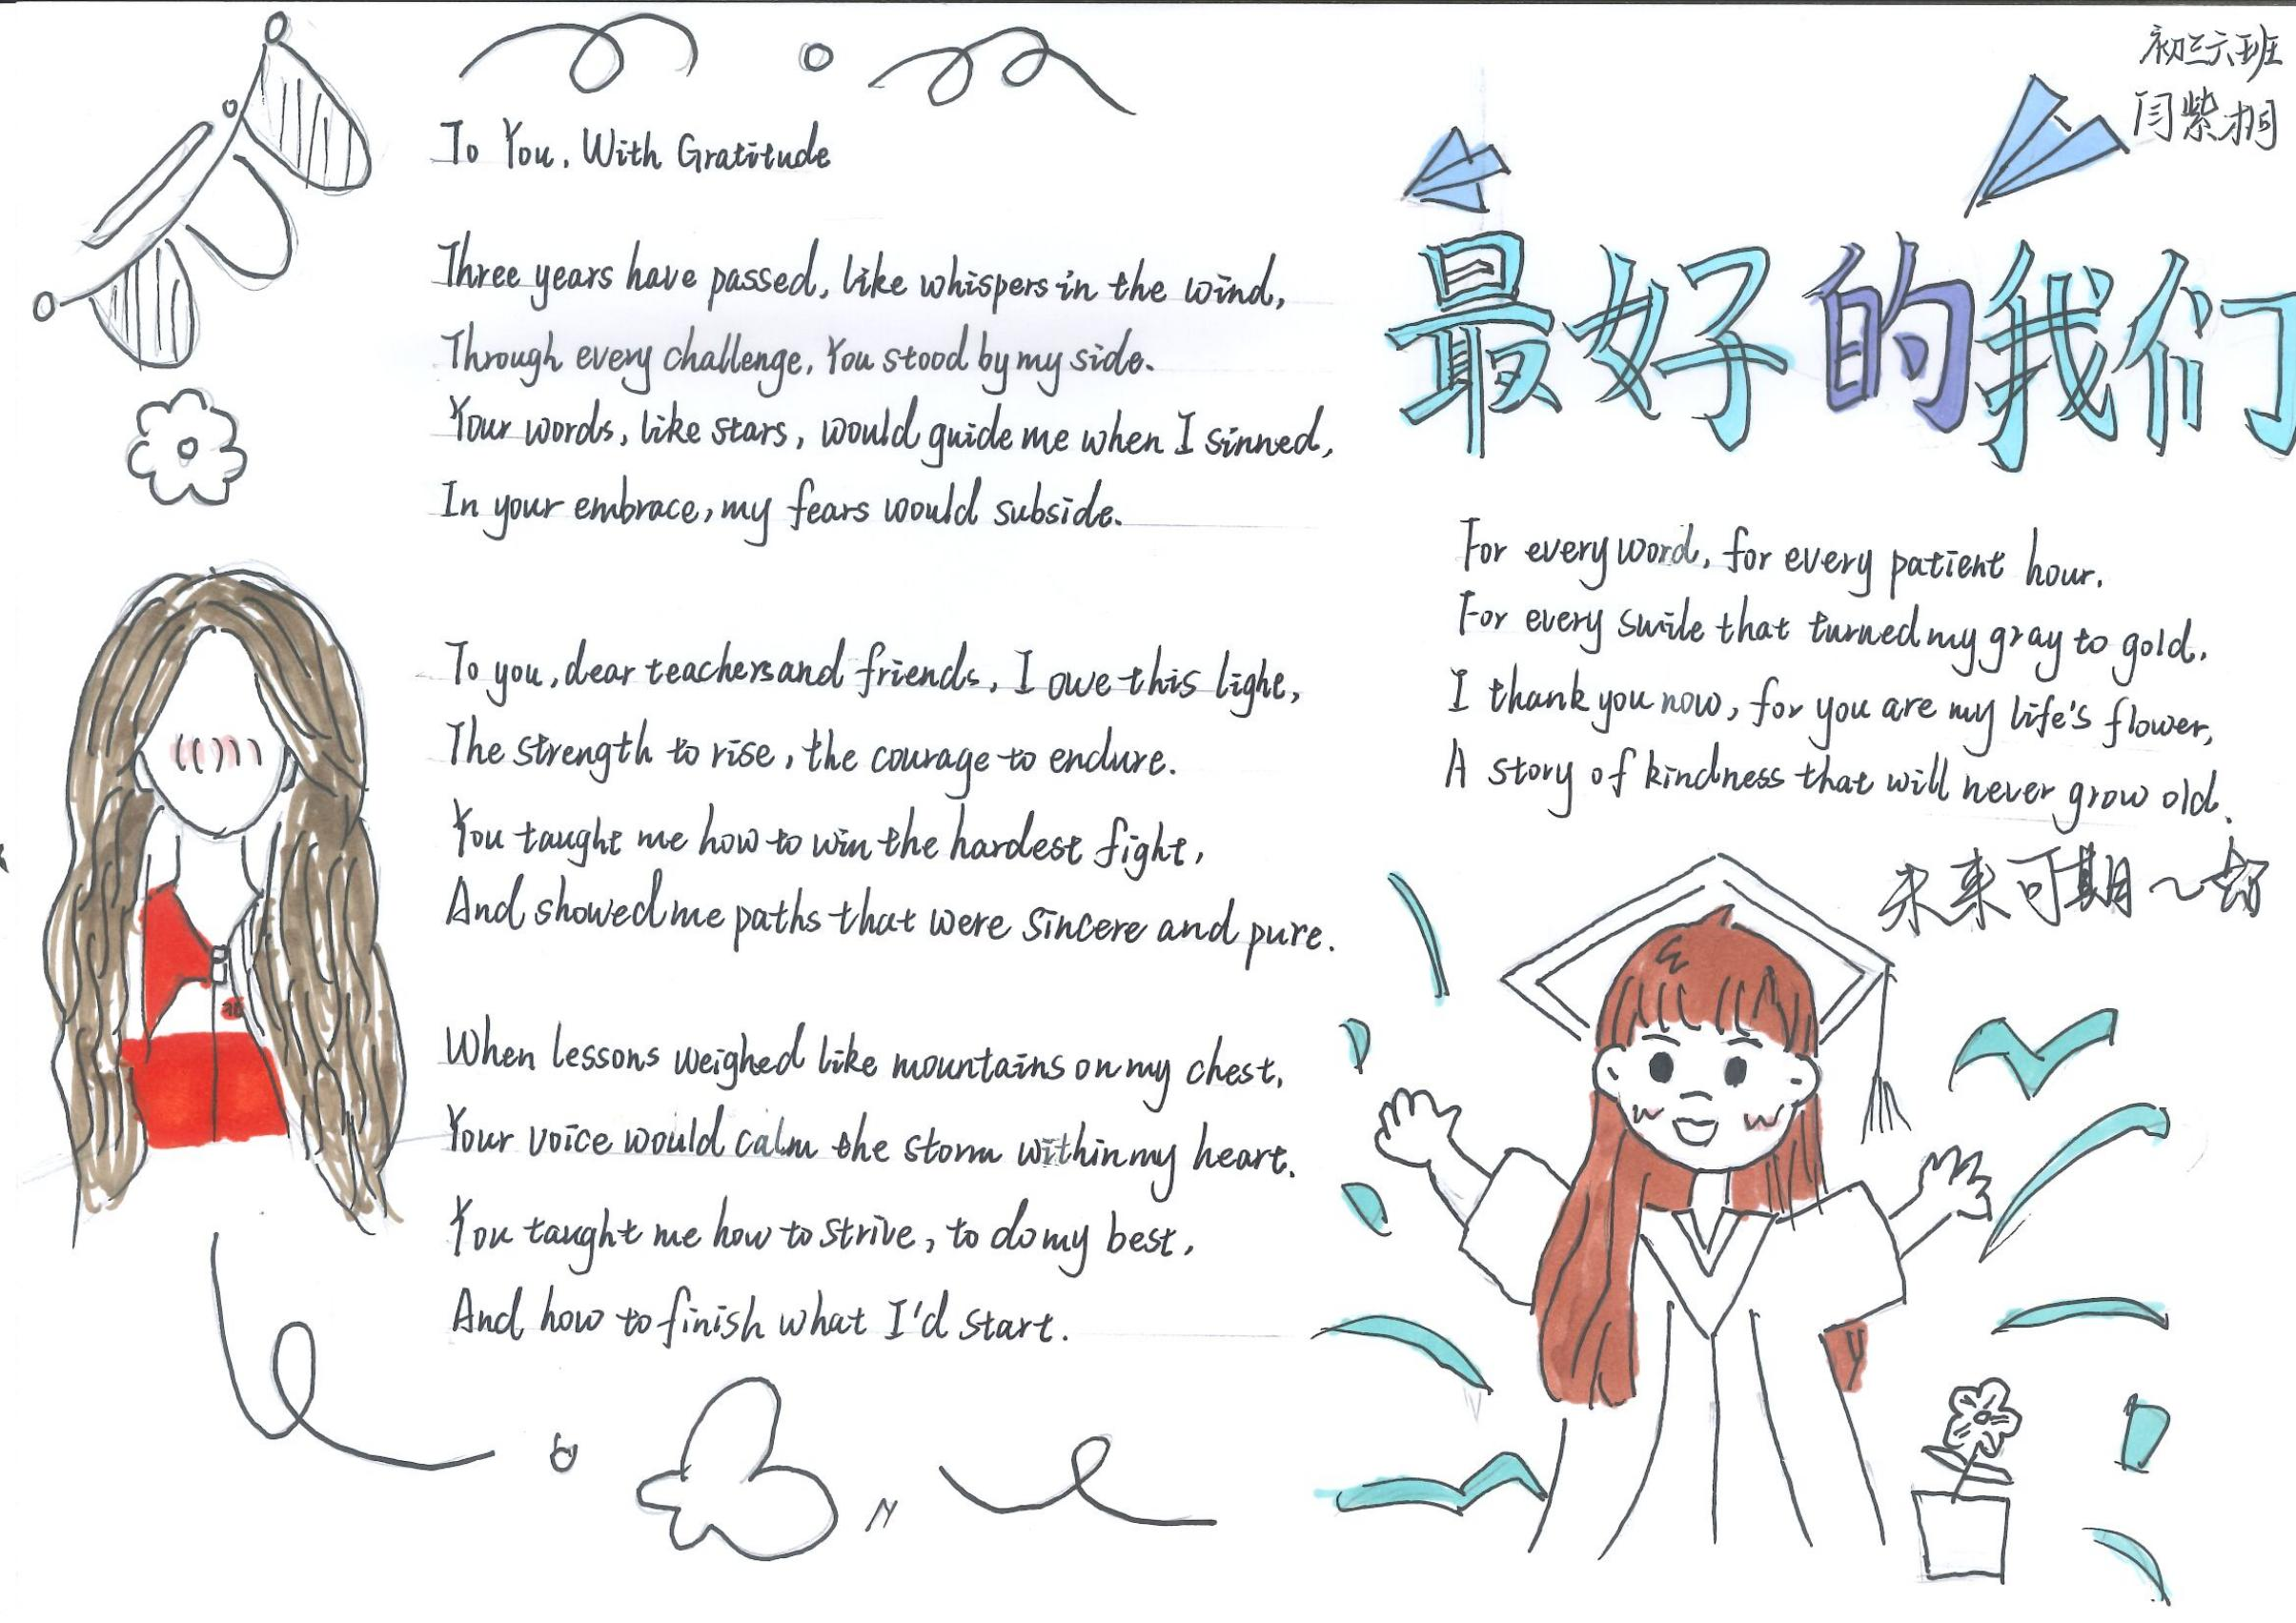 初三六班
闫紫桐
最好的我们
To You, With Gratitude
Three years have passed, like whispers in the wind,
Through every challenge, You stood by my side.
Your words, like stars, would guide me when I sinned,
In your embrace, my fears would subside.
To you, dear teachers and friends, I owe this light,
The strength to rise, the courage to endure.
You taught me how to win the hardest fight,
And showed me paths that were sincere and pure.
When lessons weighed like mountains on my chest,
Your voice would calm the storm within my heart.
You taught me how to strive, to do my best,
And how to finish what I'd start.
For every word, for every patient hour.
For every smile that turned my gray to gold,
I thank you now, for you are my life's flower,
A story of kindness that will never grow old.
未来可期～